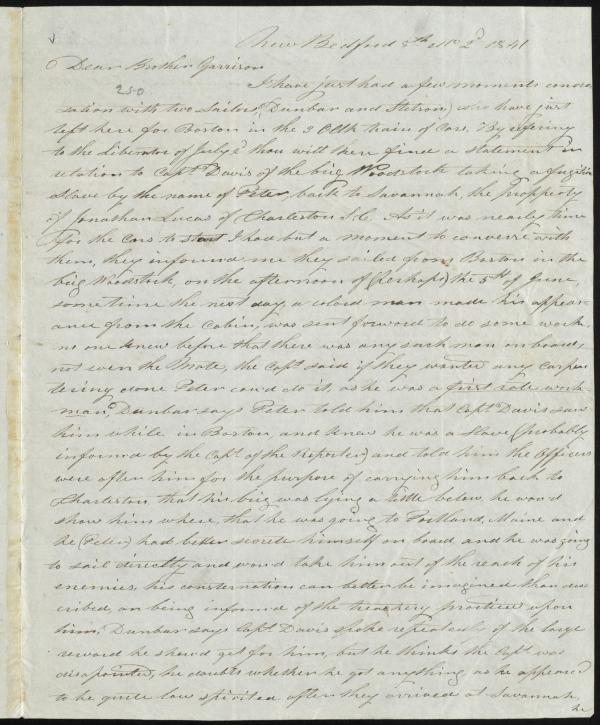 New Bedford 8th Mo 2d 1841
Dear Brother Garrison
250
I have just had a few moments conver-
sation with two Sailors (Dunbar and Stetson) who have just
left here for Boston in the 3 OClk train of Cars. By refering
to the Liberator of July 2d thou will there find a statement in
relation to Capt Davis of the brig Woodstock taking a fugitive
Slave by the name of Peter, back to Savannah, the property
of Jonathan Lucas of Charleston S.C. As it was nearly time
for the Cars to start I had but a moment to converse with
them, they informed me they sailed from Boston in the
brig Woodstock, on the afternoon of (perhaps) the 5th of June,
some time the next day, a colord man made his appear-
ance from the Cabin, was sent forward to do some work,
no one knew before that there was any such man on board,
not even the Mate, the Capt said if they wanted any carpen-
tering done Peter could do it, as he was a first rate work-
man, Dunbar says Peter told him that Capt Davis saw
him while in Boston, and knew he was a Slave (probably
informed by the Capt of the Reporter) and told him the Officers
were after him for the purpose of carrying him back to
Charleston, that his brig was lying a little below, he would
show him where, that he was going to Portland, Maine and
he (Peter) had better secrete himself on board and he was going
to sail directly and would take him out of the reach of his
enemies, his consternation can better be imagined than des-
cribed, on being informed of the treachery practiced upon
him, Dunbar says Capt Davis spoke repeatedly of the large
reward he should get for him, but he thinks the Capt was
disapointed, he doubts whether he got anything, as he appeared
to be quite low spirited after they arrived at Savannah,
he